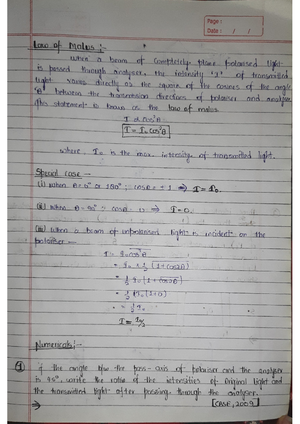 Page :
Date : / /
Law of Malus :-
when a beam of completely plane polarised light
is passed through analyser, the intensity 'I' of transmitted
light varies directly as the square of the cosines of the angle
'θ' between the transmission directions of polariser and analyser
this statement is known as the law of malus
I ∝ cos²θ
I = I₀ cos²θ
where I₀ is the max. intensity of transmitted light.
Special case :-
(i) when θ = 0° or 180° ; cosθ = ± 1 ⇒ I = I₀
(ii) when θ = 90° ; cosθ = 0 ⇒ I = 0.
(iii) when a beam of unpolarised light is incident on the
polariser :-
I = I₀cos²θ
= I₀ × 1/2 (1 + cos2θ)
= 1/2 I₀ [1 + cos2θ]
= 1/2 I₀ [1 + 0]
= 1/2 I₀
I = I₀/2
Numericals :-
Q if the angle b/w the pass-axis of polariser and the analyser
is 45°. write the ratio of the intensities of original light and
the transmitted light after passing through the analyser.
[CBSE, 2009]